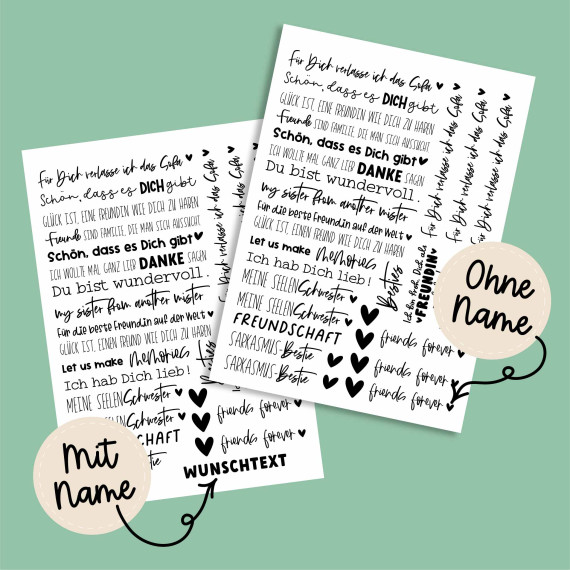 Für Dich verlasse ich das Sofa
Schön, dass es DICH gibt
GLÜCK IST, EINE FREUNDIN WIE DICH ZU HABEN
Freunde SIND FAMILIE, DIE MAN SICH AUSSUCHT
Schön, dass es Dich gibt
ICH WOLLTE MAL GANZ LIEB DANKE SAGEN
Du bist wundervoll.
my sister from another mister
Für die beste Freundin auf der Welt
GLÜCK IST, EINEN FREUND WIE DICH ZU HABEN
Let us make Memories
Ich hab Dich lieb!
MEINE SEELENSchwester
MEINE SEELENSchwester
FREUNDSCHAFT
SARKASMUS-Bestie
SARKASMUS-Bestie
Für Dich verlasse ich das Sofa
Für Dich verlasse ich das Sofa
Für Dich verlasse ich das Sofa
Besties
FREUNDIN
friends forever
friends forever
friends forever
Ohne
Name
Für Dich verlasse ich das Sofa
Schön, dass es DICH gibt
GLÜCK IST, EINE FREUNDIN WIE DICH ZU HABEN
Freunde SIND FAMILIE, DIE MAN SICH AUSSUCHT
Schön, dass es Dich gibt
ICH WOLLTE MAL GANZ LIEB DANKE SAGEN
Du bist wundervoll.
my sister from another mister
Für die beste Freundin auf der Welt
GLÜCK IST, EINEN FREUND WIE DICH ZU HABEN
Let us make Memories
Ich hab Dich lieb!
MEINE SEELENSchwester
MEINE SEELENSchwester
friends forever
friends forever
WUNSCHTEXT
Mit
Name